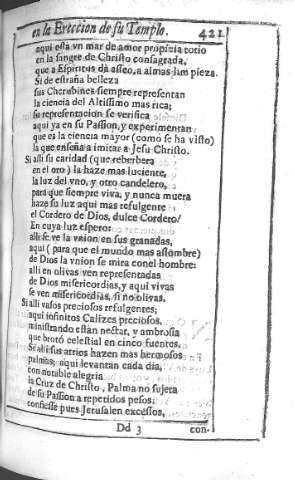 en la Ereccion de su Templo. 421
aqui està vn mar de amor propiciatorio
en la sangre de Christo consagrada,
que a Espiritus dà asseo, a almas limpieza.
Si de estraña belleza
sus Cherubines siempre representan
la ciencia del Altissimo mas rica;
su representacion se verifica
aqui ya en su Passion, y experimentan
que es la ciencia mayor (como se ha visto)
la que enseña a imitar a Jesu Christo.
Si alli su caridad (que reberbera
en el oro) la haze mas luciente,
la luz del vno, y otro candelero,
para que siempre viva, y nunca muera
haze su luz aqui mas refulgente
el Cordero de Dios, dulce Cordero!
En cuya luz espero:
alli se ve la vnion en sus granadas,
aqui (para que el mundo mas assombre)
de Dios la vnion se mira con el hombre:
alli en olivas ven representadas
de Dios misericordias, y aqui vivas
se ven misericordias, si no olivas.
Si alli vasos preciosos refulgentes;
aqui infinitos Calizes preciosos,
ministrando estàn nectar, y ambrosia
que brotó celestial en cinco fuentes.
Si alli sus atrios hazen mas hermosos
palmas; aqui levantan cada dia,
con notable alegria
la Cruz de Christo, Palma no sujeta
de su Passion a repetidos pesos;
confiesse pues Jerusalen excessos,
Dd 3 con-